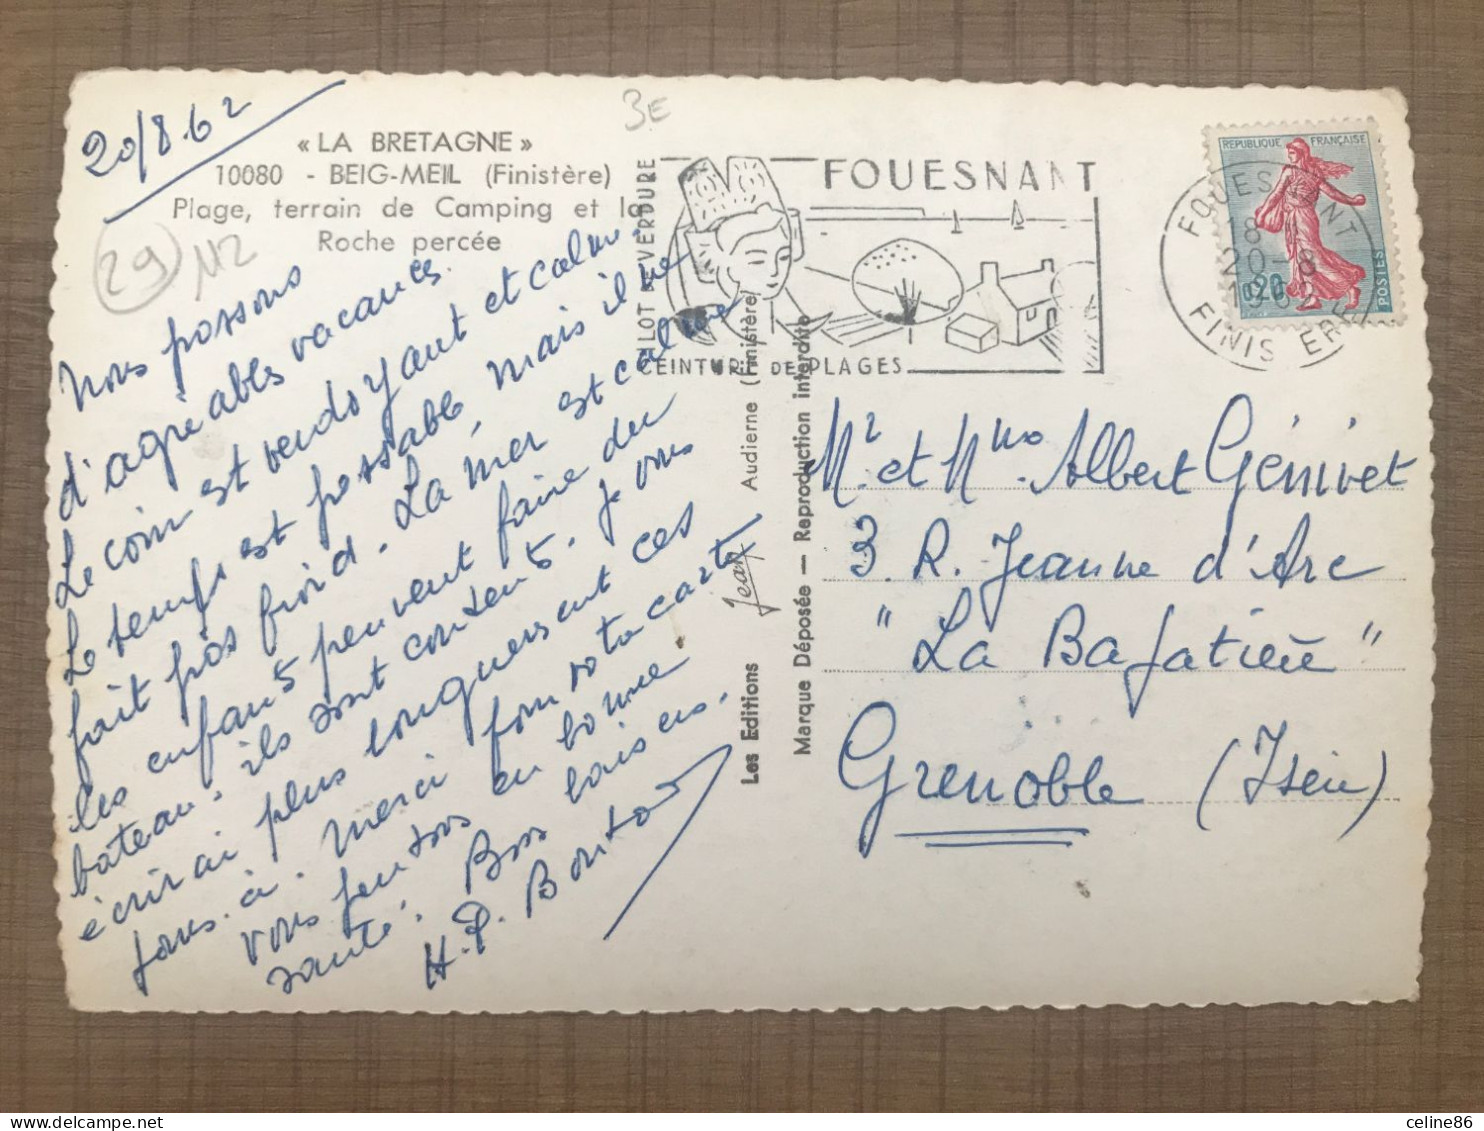 20/8.62
3E
« LA BRETAGNE »
10080 - BEIG-MEIL (Finistère)
Plage, terrain de Camping et la
Roche percée
29 112
Nous passons
d'agréables vacances.
Le coin est verdoyant et calme.
Le temps est passable, mais il ne
fait pas froid. La mer est calme
les enfants peuvent faire du
bateau. ils sont contents. Je vous
écrirai plus longuement ces
jours-ci. Merci pour votre carte
vous sentons en bonne
santé. Bons baisers.
H.P.
ILOT DE VERDURE
FOUESNANT
CEINTURE DE PLAGES
FOUESNANT
18 H
20-8
1962
FINISTERE
REPUBLIQUE FRANÇAISE
0,20
POSTES
Les Editions Jean Audierne (Finistère)
Marque Déposée — Reproduction interdite
Mr et Mme Albert Génivet
3. R. Jeanne d'Arc
"La Bajatière"
Grenoble (Isère)
celine86